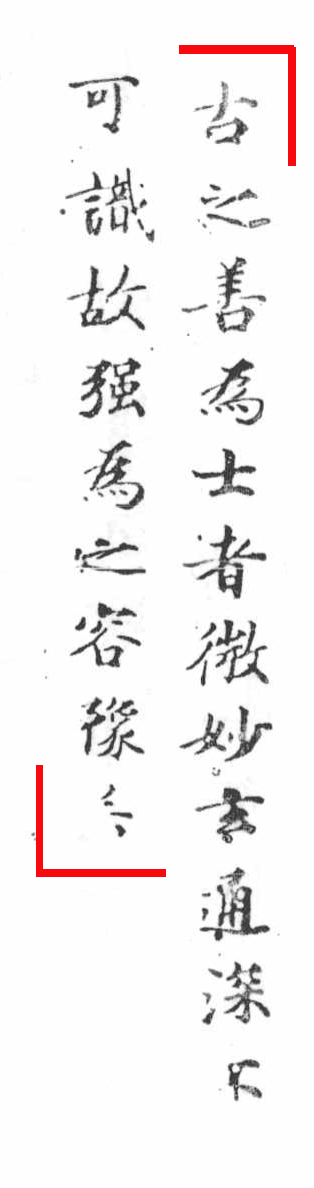 古之善為士者微妙玄通深不
可識故强為之容豫兮